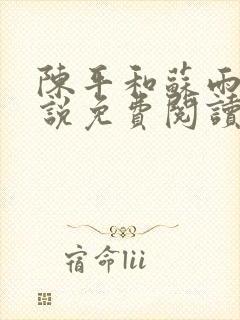 陳平和蘇雨
說免費閱讀
宿命lii